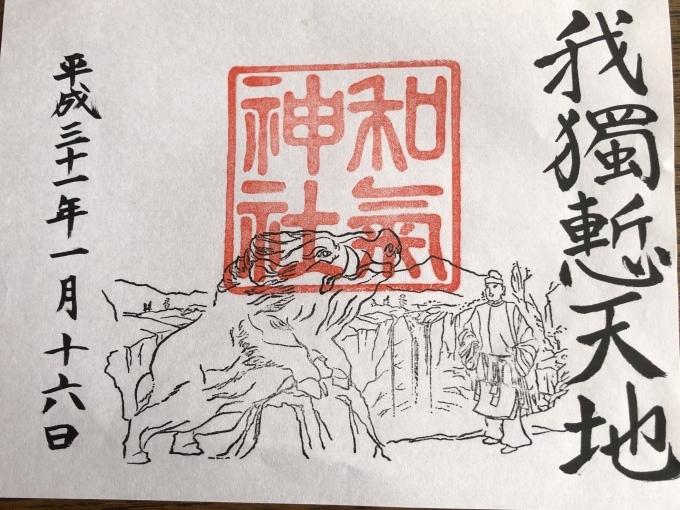 我獨慙天地
和氣
神社
平成三十一年一月十六日